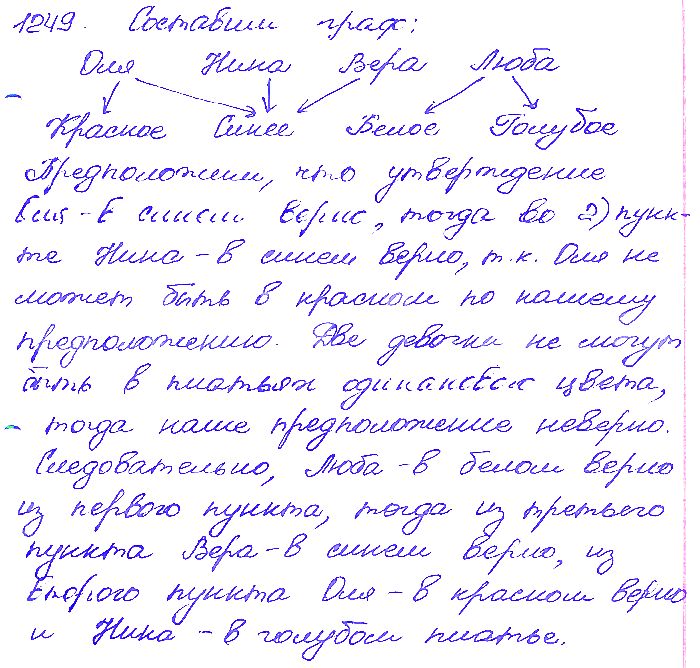 1249. Составим граф:
Оля Нина Вера Люба
Красное Синее Белое Голубое
Предположим, что утверждение
Оля - в синем верно, тогда во 2) пунк-
те Нина - в синем верно, т.к. Оля не
может быть в красном по нашему
предположению. Две девочки не могут
быть в платьях одинакового цвета,
тогда наше предположение неверно.
Следовательно, Люба - в белом верно
из первого пункта, тогда из третьего
пункта Вера - в синем верно, из
второго пункта Оля - в красном верно
и Нина - в голубом платье.